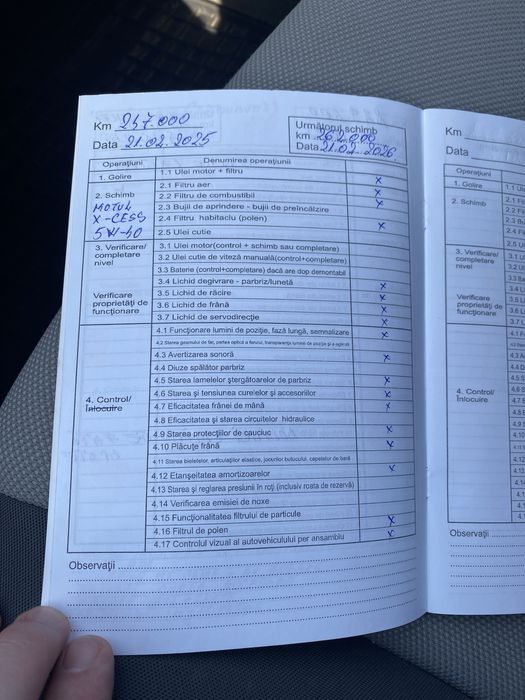 Km 247.000
Data 21.02.2025
Următorul schimb
km 262.000
Data 21.02.2026
Operațiuni Denumirea operațiunii
1. Golire 1.1 Ulei motor + filtru
2. Schimb
MOTUL
X-CESS
5W-40
2.1 Filtru aer x
2.2 Filtru de combustibil x
2.3 Bujii de aprindere - bujii de preîncălzire x
2.4 Filtru habitaclu (polen) x
2.5 Ulei cutie
3. Verificare/
completare
nivel
Verificare
proprietăți de
funcționare
3.1 Ulei motor(control + schimb sau completare)
3.2 Ulei cutie de viteză manuală(control+completare)
3.3 Baterie (control+completare) dacă are dop demontabil
3.4 Lichid degivrare - parbriz/lunetă
3.5 Lichid de răcire x
3.6 Lichid de frână x
3.7 Lichid de servodirecție x
4. Control/
Înlocuire
4.1 Funcționare lumini de poziție, fază lungă, semnalizare x
4.3 Avertizarea sonoră x
4.4 Diuze spălător parbriz
4.5 Starea lamelelor ștergătoarelor de parbriz x
4.6 Starea și tensiunea curelelor și accesoriilor x
4.7 Eficacitatea frânei de mână x
4.8 Eficacitatea și starea circuitelor hidraulice
4.9 Starea protecțiilor de cauciuc x
4.10 Plăcuțe frână x
4.11 Starea bieletelor, articulațiilor elastice, jocurilor butucului, capetelor de bară
4.12 Etanșeitatea amortizoarelor x
4.13 Starea și reglarea presiunii în roți (inclusiv roata de rezervă)
4.14 Verificarea emisiei de noxe
4.15 Funcționalitatea filtrului de particule
4.16 Filtrul de polen x
4.17 Controlul vizual al autovehiculului per ansamblu x
Observații
Km
Data
Operațiuni
1. Golire
2. Schimb
3. Verificare/
completare
nivel
Verificare
proprietăți de
funcționare
4. Control/
Înlocuire
Observații